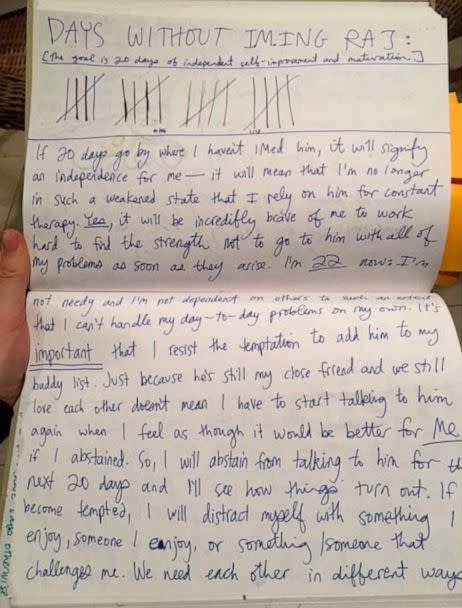 DAYS WITHOUT IMING RAJ:
[The goal is 20 days of independent self-improvement and maturation.]
If 20 days go by where I haven't IMed him, it will signify
an independence for me — it will mean that I'm no longer
in such a weakened state that I rely on him for constant
therapy. Yes, it will be incredibly brave of me to work
hard to find the strength not to go to him with all of
my problems as soon as they arise. I'm 22 now: I'm
not needy and I'm not dependent on others to such an extent
that I can't handle my day-to-day problems on my own. It's
important that I resist the temptation to add him to my
buddy list. Just because he's still my close friend and we still
love each other doesn't mean I have to start talking to him
again when I feel as though it would be better for Me
if I abstained. So, I will abstain from talking to him for th
next 20 days and I'll see how things turn out. If
become tempted, I will distract myself with something I
enjoy, someone I enjoy, or something/someone that
challenges me. We need each other in different ways